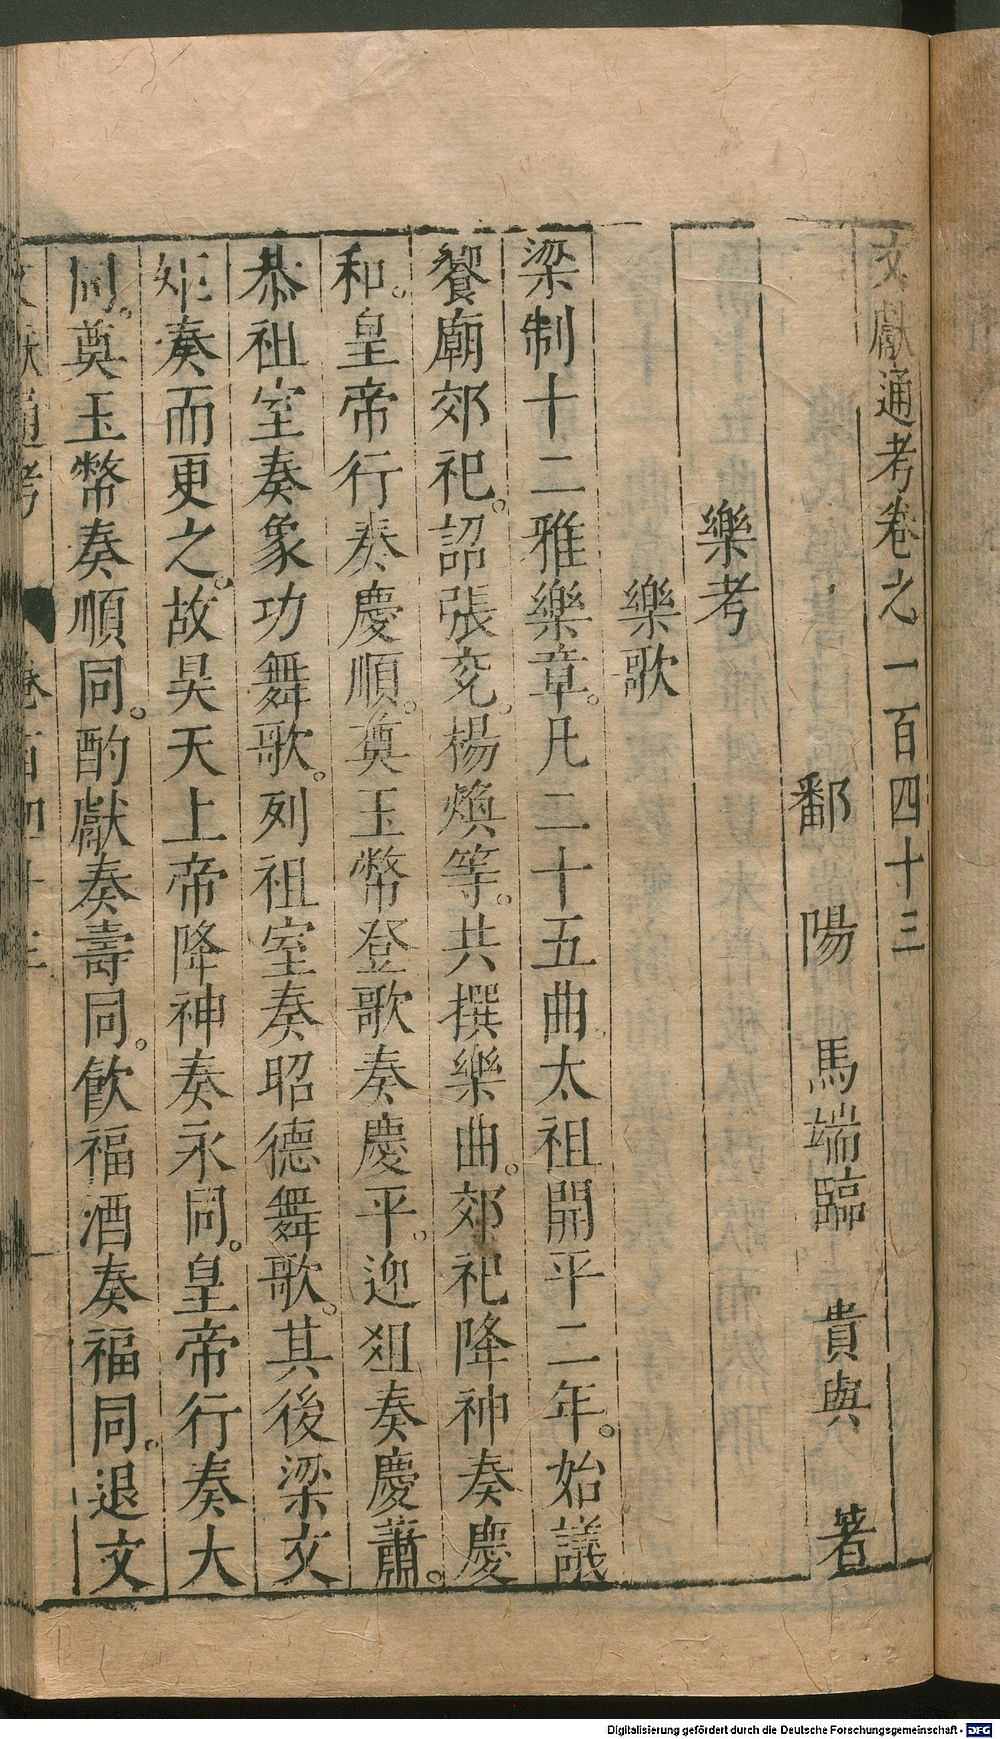 文獻通考卷之一百四十三
鄱陽馬端臨貴與著
樂考
樂歌
梁制十二雅樂章。凡二十五曲太祖開平二年。始議
饗廟郊祀。詔張兗。楊煥等。共撰樂曲。郊祀降神奏慶
和。皇帝行奏慶順。奠玉幣登歌奏慶平。迎俎奏慶肅。
恭祖室奏象功舞歌。列祖室奏昭德舞歌。其後梁文
矩奏而更之。故昊天上帝降神奏永同。皇帝行奏大
同。奠玉幣奏順同。酌獻奏壽同。飲福酒奏福同。退文
文獻通考 卷百四十三
Digitalisierung gefördert durch die Deutsche Forschungsgemeinschaft - DFG